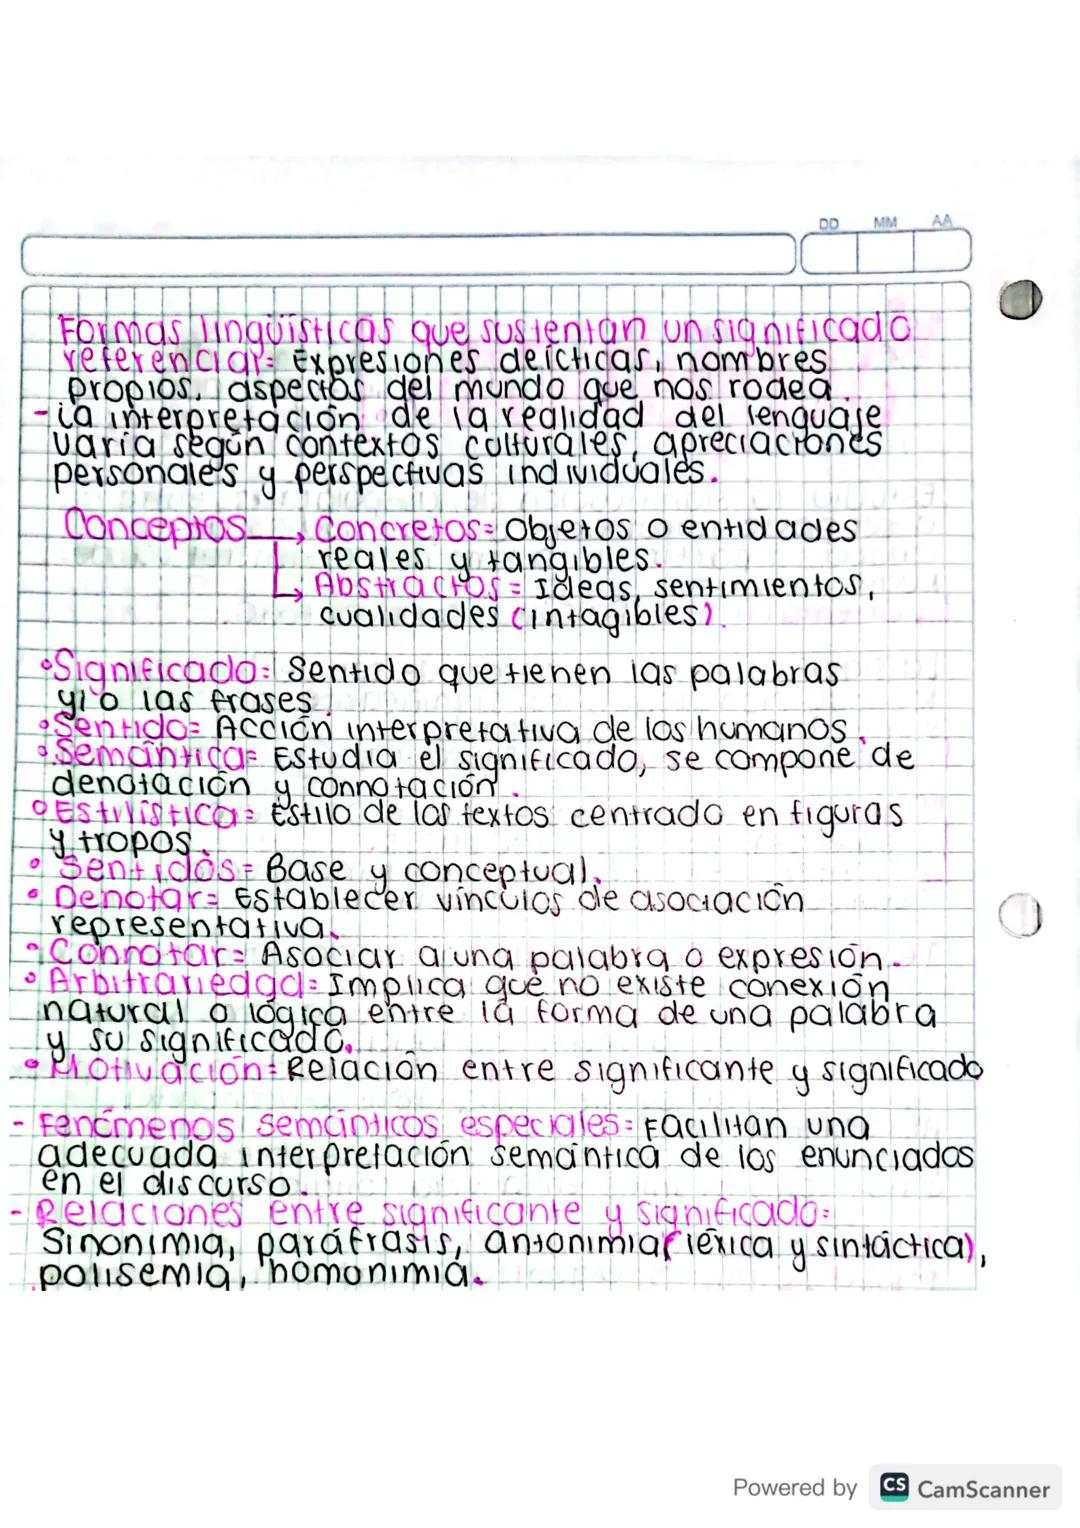 DD MM AA
Formas lingüísticas que sustentan un significado
referencial= Expresiones deícticas, nombres
propios, aspectos del mundo que nos rodea.
-La interpretación de la realidad del lenguaje
varía según contextos culturales, apreciaciones
personales y perspectivas individuales.
Conceptos → Concretos= Objetos o entidades
reales y tangibles.
↳ Abstractos= Ideas, sentimientos,
cualidades (intagibles).
•Significado= Sentido que tienen las palabras
y/o las frases.
•Sentido= Acción interpretativa de los humanos.
•Semántica= Estudia el significado, se compone de
denotación y connotación.
•Estilística= Estilo de los textos centrado en figuras
y tropos.
• Sentidos= Base y conceptual.
• Denotar= Establecer vínculos de asociación
representativa.
• Connotar= Asociar a una palabra o expresión.
• Arbitrariedad= Implica que no existe conexión
natural o lógica entre la forma de una palabra
y su significado.
• Motivación= Relación entre significante y significado
- Fenómenos semánticos especiales= Facilitan una
adecuada interpretación semántica de los enunciados
en el discurso.
- Relaciones entre significante y significado=
Sinonimia, paráfrasis, antonimia (léxica y sintáctica),
polisemia, homonimia.
Powered by CS CamScanner